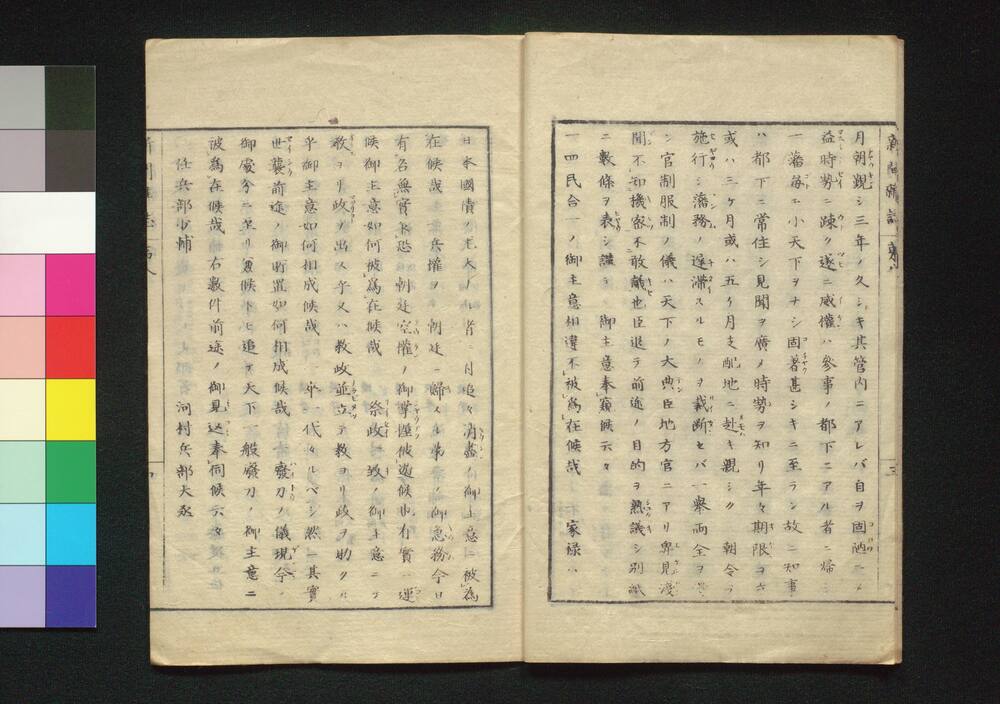 月朝覲シ三年ノ久シキ其管内ニアレバ自ヲ固陋ニ
益時勢ニ疎ク遂ニ威權ハ參事ノ都下ニアル者ニ帰
一藩毎ニ小天下ヲナシ固著甚シキニ至ラン故ニ知事
ハ都下ニ常住シ見聞ヲ廣メ時勢ヲ知リ年々期限ヲ立
或ハ三ケ月或ハ五ケ月支配地ニ赴キ親シク 朝令ヲ
施行シ藩務ノ遅滞スルモノヲ裁断セバ一舉両全ヲ
官制服制ノ儀ハ天下ノ大典臣地方官ニアリ卑見淺
聞不知機密不敢議也臣退テ前途ノ目的ヲ熟議シ別紙
ニ數條ヲ表シ 御主意奉窺候云々
一四民合一ノ御主意相違不被為在候哉 家禄ハ
日本國債ノ尤大ナル者ニ付追々消盡ノ御主意ニ被為
在候哉 兵權ヲ 朝廷ニ歸スル第一ノ御急務今日
有名無實ト恐 朝廷空權ノ御掌握被遊候也有實ノ運
候御主意如何被為在候哉 祭政一致ノ御主意ニテ
教ヨリ政ヲ出ス乎又ハ教政並立テ教ヨリ政ヲ助クル
乎御主意如何相成候哉 卒一代タルベシ然一其實
世襲前途ノ御所置如何相成候哉 廢刀ノ儀現今
御處分ニ至リ兼候トモ追テ天下一般廢刀ノ御主意ニ
被為在候哉 右數件前途ノ御見込奉伺候云々
任兵部少輔 河村兵部大丞